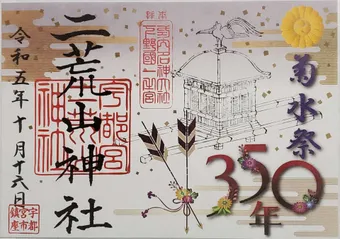 菊水祭
350年
日本
延喜式内名神大社
下野國一之宮
二荒山神社
宇都宮
二荒山
神社
令和五年十月十六日
宇都
宮市
鎮座